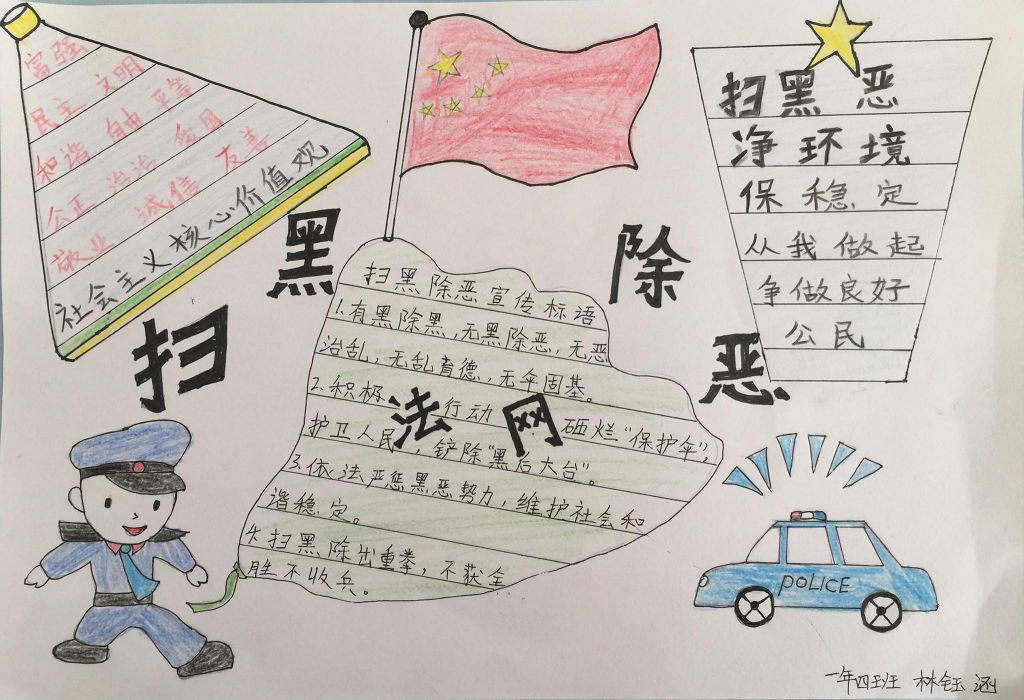 富强
民主 文明
和谐 自由 平等
公正 治治 爱国
敬业 诚信 友善
社会主义核心价值观
扫
黑
除
恶
扫黑除恶宣传标语
1.有黑除黑,无黑除恶,无恶
治乱,无乱育德,无伞固基。
2.积极 行动 砸烂"保护伞",
护卫人民,铲除"黑后大台"。
3.依法严惩黑恶势力,维护社会和
谐稳定。
4.扫黑除出重拳,不获全
胜不收兵。
法网
扫黑 恶
净环境
保稳定
从我做起
争做良好
公民
POLICE
一年四班 林钰涵